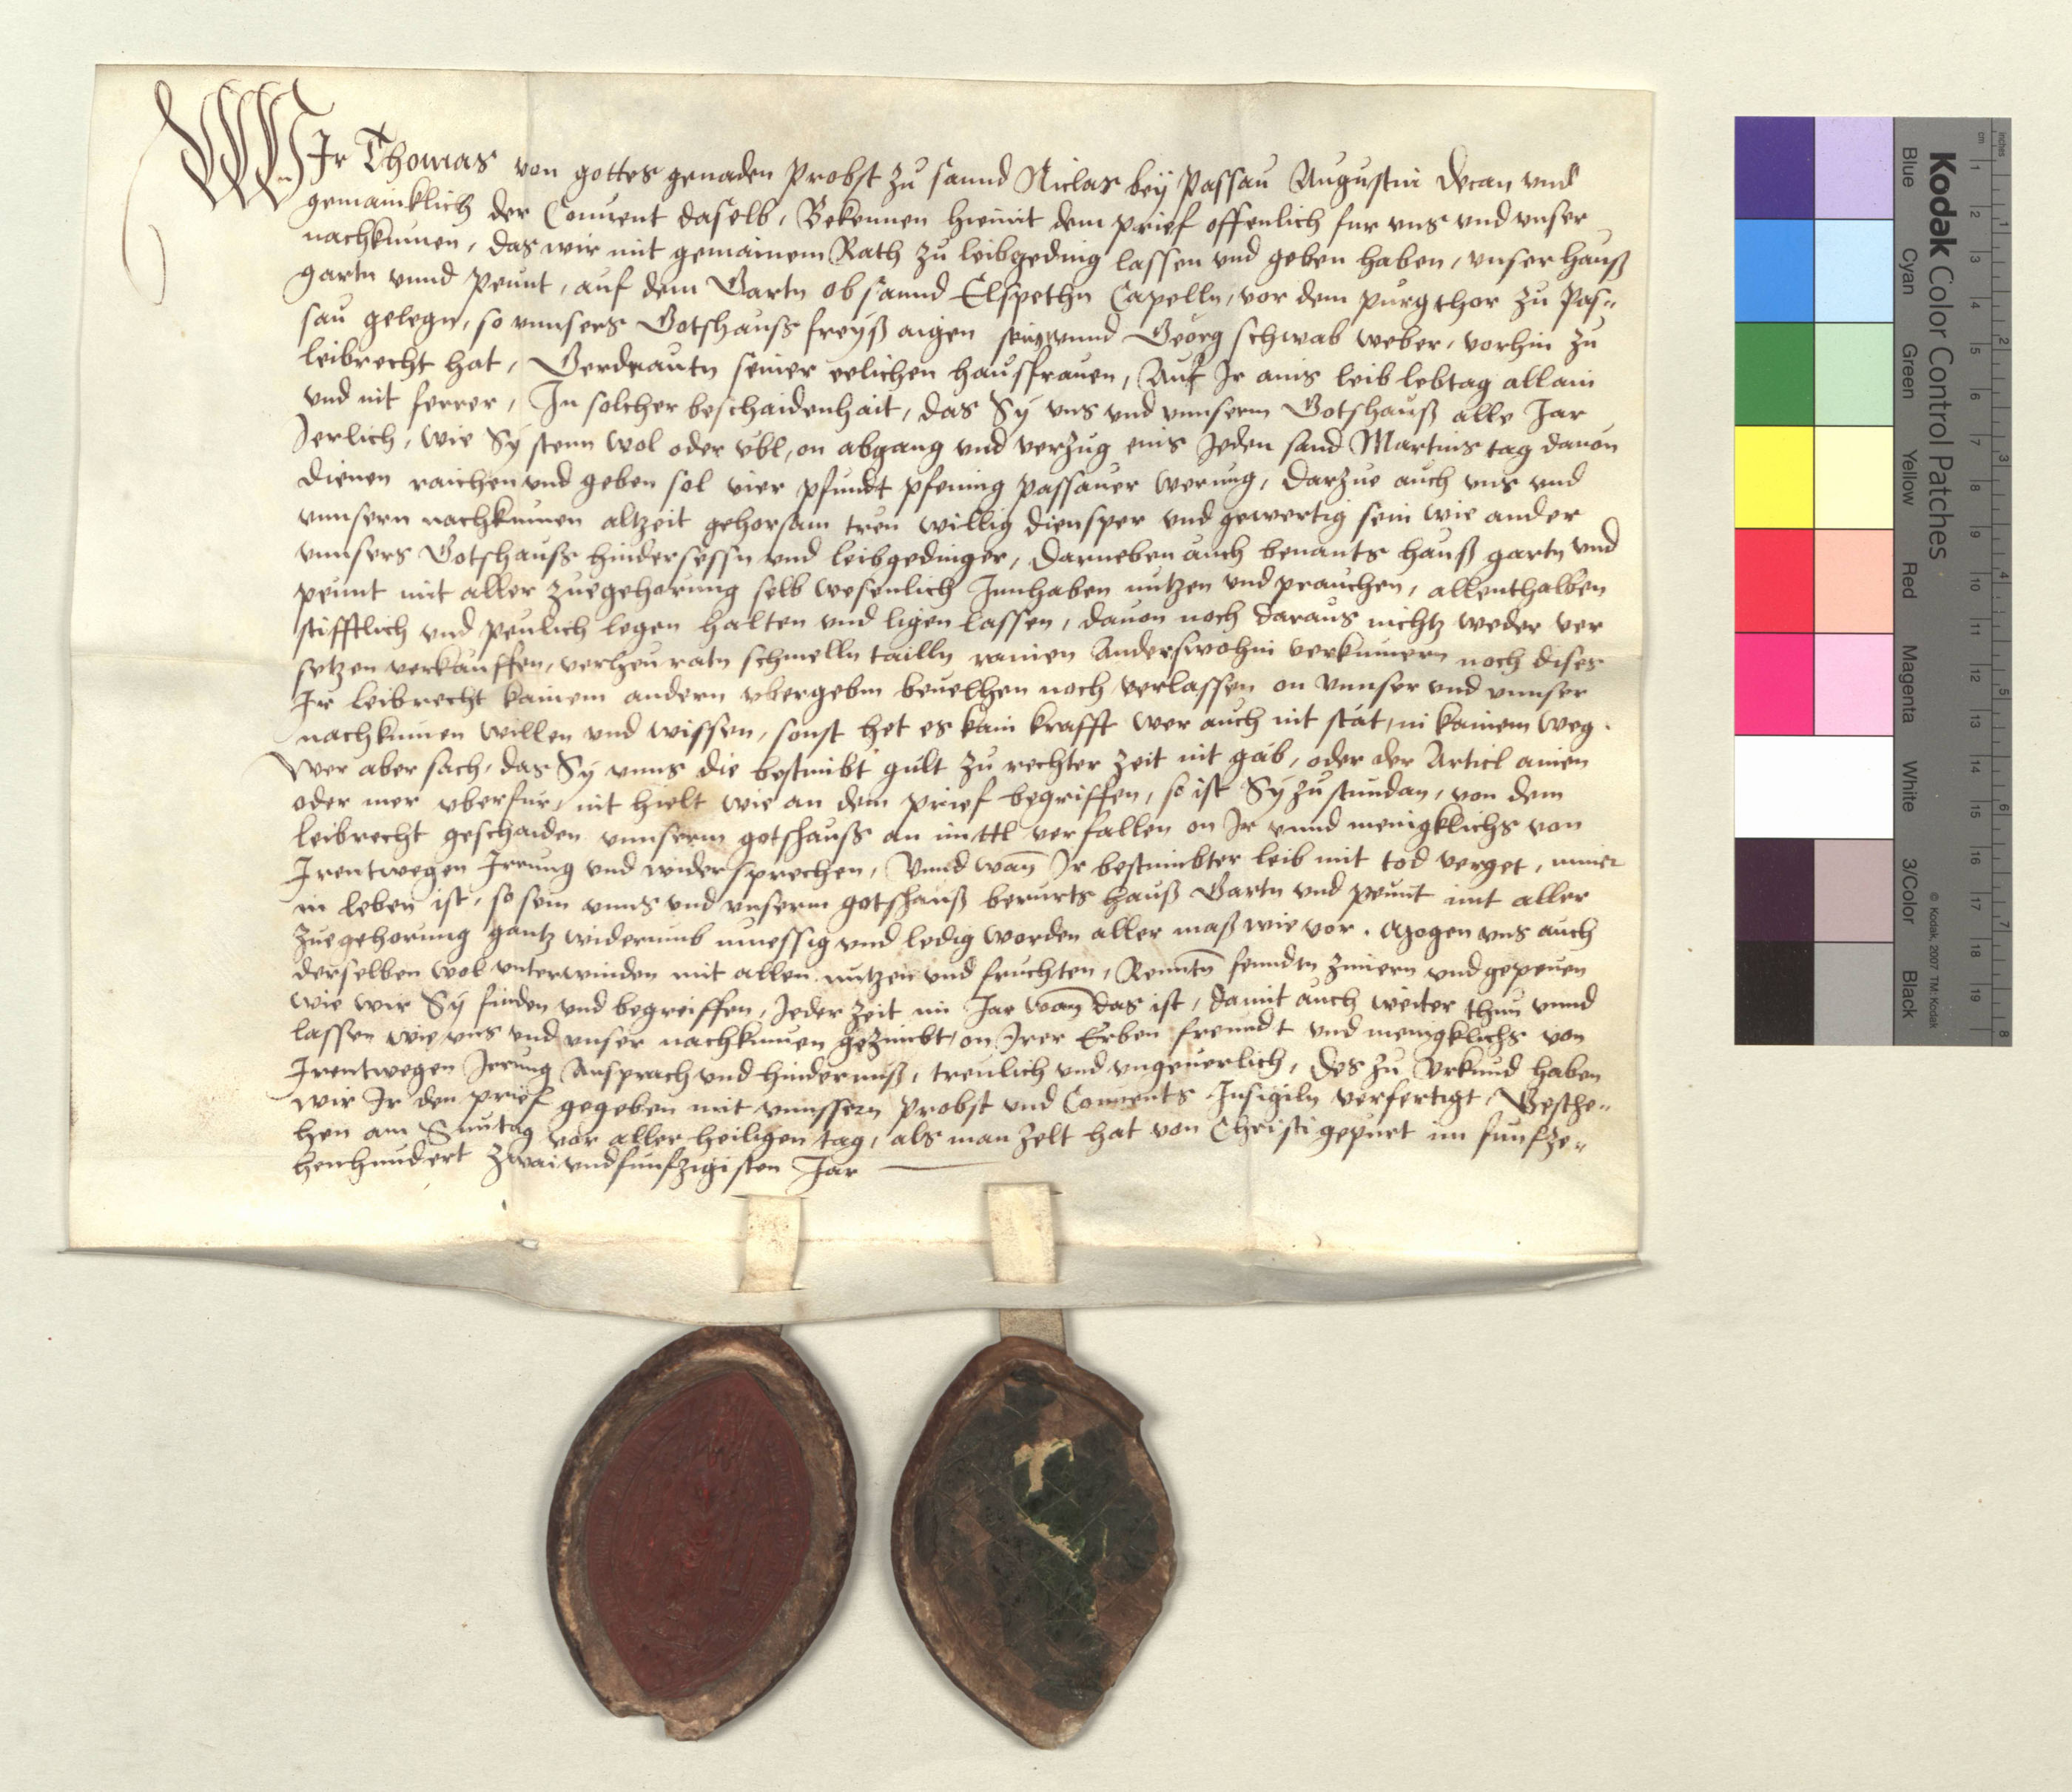 WIr Thomas von gottes genaden Probst zu sannd Niclas bey Passau Augustin Decan vnd
gemainklich der Conuent daselb, Bekennen hiemit dem prief offenlich fur vns vnd vnser
nachkumen, das wir mit gemainem Rath zu leibgeding lassen vnd geben haben, vnser hauß
gartn vnnd peunt, auf dem Gartn ob sannd Elspethn Capelln, vor dem purgthor zu Pas=
sau gelegn, so vnnsers Gotshauss freyß aigen sein, vnnd Georg schwab weber, vorhin zu
leibrecht hat, Gerdrautn seiner eelichen hausfrauen, Auf Jr ains leib lebtag allain
vnd nit ferrer, In solcher beschaidenhait, das Sy vns vnd vnnserm Gotshauß alle Jar
Jerlich, wie Sy stenn wol oder vbl, on abgang vnd verzug eins Jeden sand Martins tag dauon
dienen raichen vnd geben sol vier pfundt pfening passauer werung, Darzue auch vns vnd
vnnsern nachkumen altzeit gehorsam treu willig diensper vnd gewertig sein wie ander
vnnsers Gotshauss hindersessn vnd leibgedinger, Darneben auch benants hauß gartn vnd
peunt mit aller zuegehorung selb wesenlich Innhaben nutzen vnd prauchen, allenthalben
stifftlich vnd peulich legen halten vnd ligen lassen, dauon noch daraus nichtz weder ver
setzen verkauffen, verheuratn schmelln tailln rainen Anderswohin verkumern noch dises
Ir leibrecht kainem andern vbergebm beuelhen noch verlassen on vnnser vnd vnnser
nachkumen willen vnd wissen, sonst het es kain krafft wer auch nit stät, in kainem weg.
Wer aber sach, das Sy vnns die bestimbt gult zu rechter zeit nit gäb, oder der Articl ainen
oder mer vberfur, nit hielt wie an dem prief begriffen, so ist Sy zu stundan, von dem
leibrecht geschaiden vnnserm gotshauss an mittl verfallen on Jr vnnd menigklichs von
Irentwegen Jrrung vnd widersprechen, Vnnd wañ Jr bestimbter leib mit tod verget, nimer
in leben ist, so sein vnns vnd vnserm gotshauß berurts hauß Gartn vnd peunt mit aller
zuegehorung gantz widerumb muessig vnd ledig worden aller maß wie vor. Mogen vns auch
derselben wol vnterwinden mit allen nutzen vnd fruchten, Renntn fenndtn zimern vnd gepeuen
wie wir Sy finden vnd begreiffen, Jeder zeit im Jar wañ das ist, damit auch weiter thun vnnd
lassen wie vns vnd vnser nachkumen gezimbt, on Jrer Erben freundt vnd menigklichs von
Irentwegen Jrrung Ansprach vnd hindernuß, treulich vnd vngeuerlich, Des zu Vrkund haben
wir Ir den prief gegeben mit vnnssern Probst vnd Conuents Insigiln verfertigt, Besche=
hen am Sunntag vor aller heiligen tag, als man zelt hat von Christi gepurt im funfze=
henhundert zwaivndfunfzigisten Jar
Kodak Color Control Patches
© Kodak, 2007 TM: Kodak
Blue Cyan Green Yellow Red Magenta White 3/Color Black
cm 1 2 3 4 5 6 7 8 9 10 11 12 13 14 15 16 17 18 19
inches 1 2 3 4 5 6 7 8